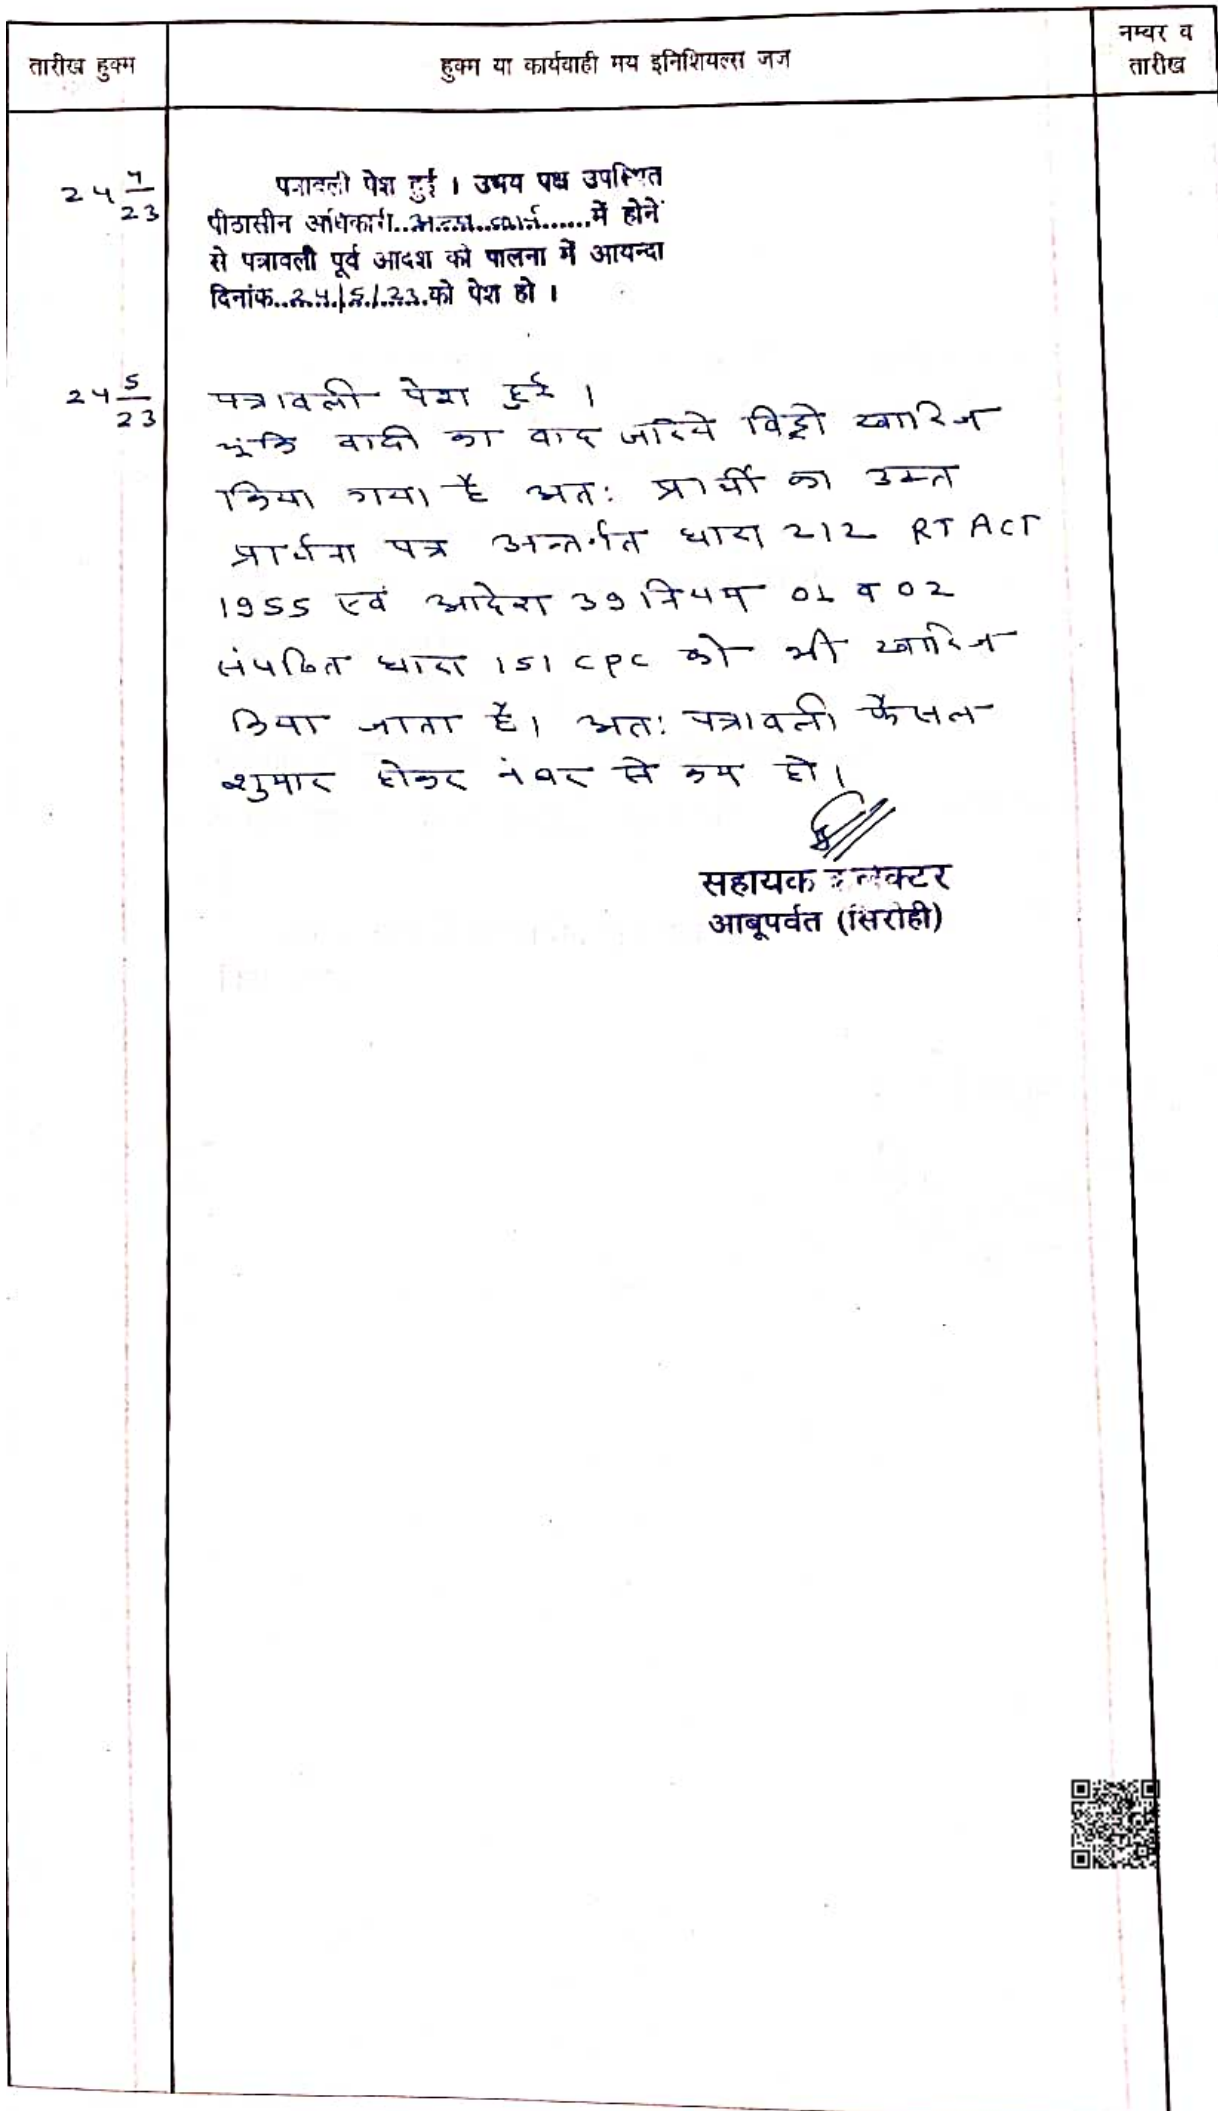 तारीख हुक्म
हुक्म या कार्यवाही मय इनिशियल्स जज
नम्बर व
तारीख
24 4/23
पत्रावली पेश हुई । उभय पक्ष उपस्थित
पीठासीन अधिकारी..अन्य..कार्य......में होने
से पत्रावली पूर्व आदेश की पालना में आयन्दा
दिनांक..24/5/23.को पेश हो ।
24 5/23
पत्रावली पेश हुई ।
चूंकि वादी का वाद जरिये विड्रो खारिज
किया गया है अत: प्रार्थी का उक्त
प्रार्थना पत्र अन्तर्गत धारा 212 RT ACT
1955 एवं आदेश 39 नियम 01 व 02
संपठित धारा 151 CPC को भी खारिज
किया जाता है। अत: पत्रावली फैसल
शुमार होकर नंबर से कम हो।
सहायक कलेक्टर
आबूपर्वत (सिरोही)